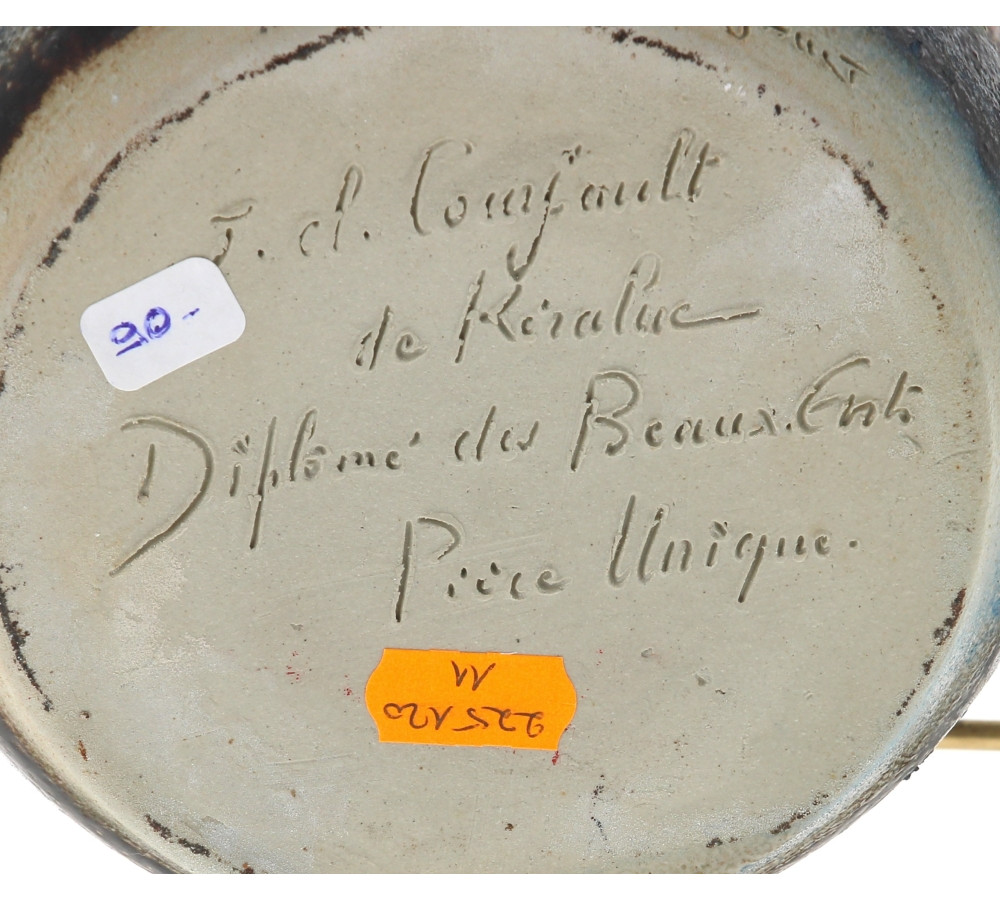 J. cl. Courjault
de Kéraluc
Diplomé des Beaux. Arts
Pièce Unique.
20.-
11
225120